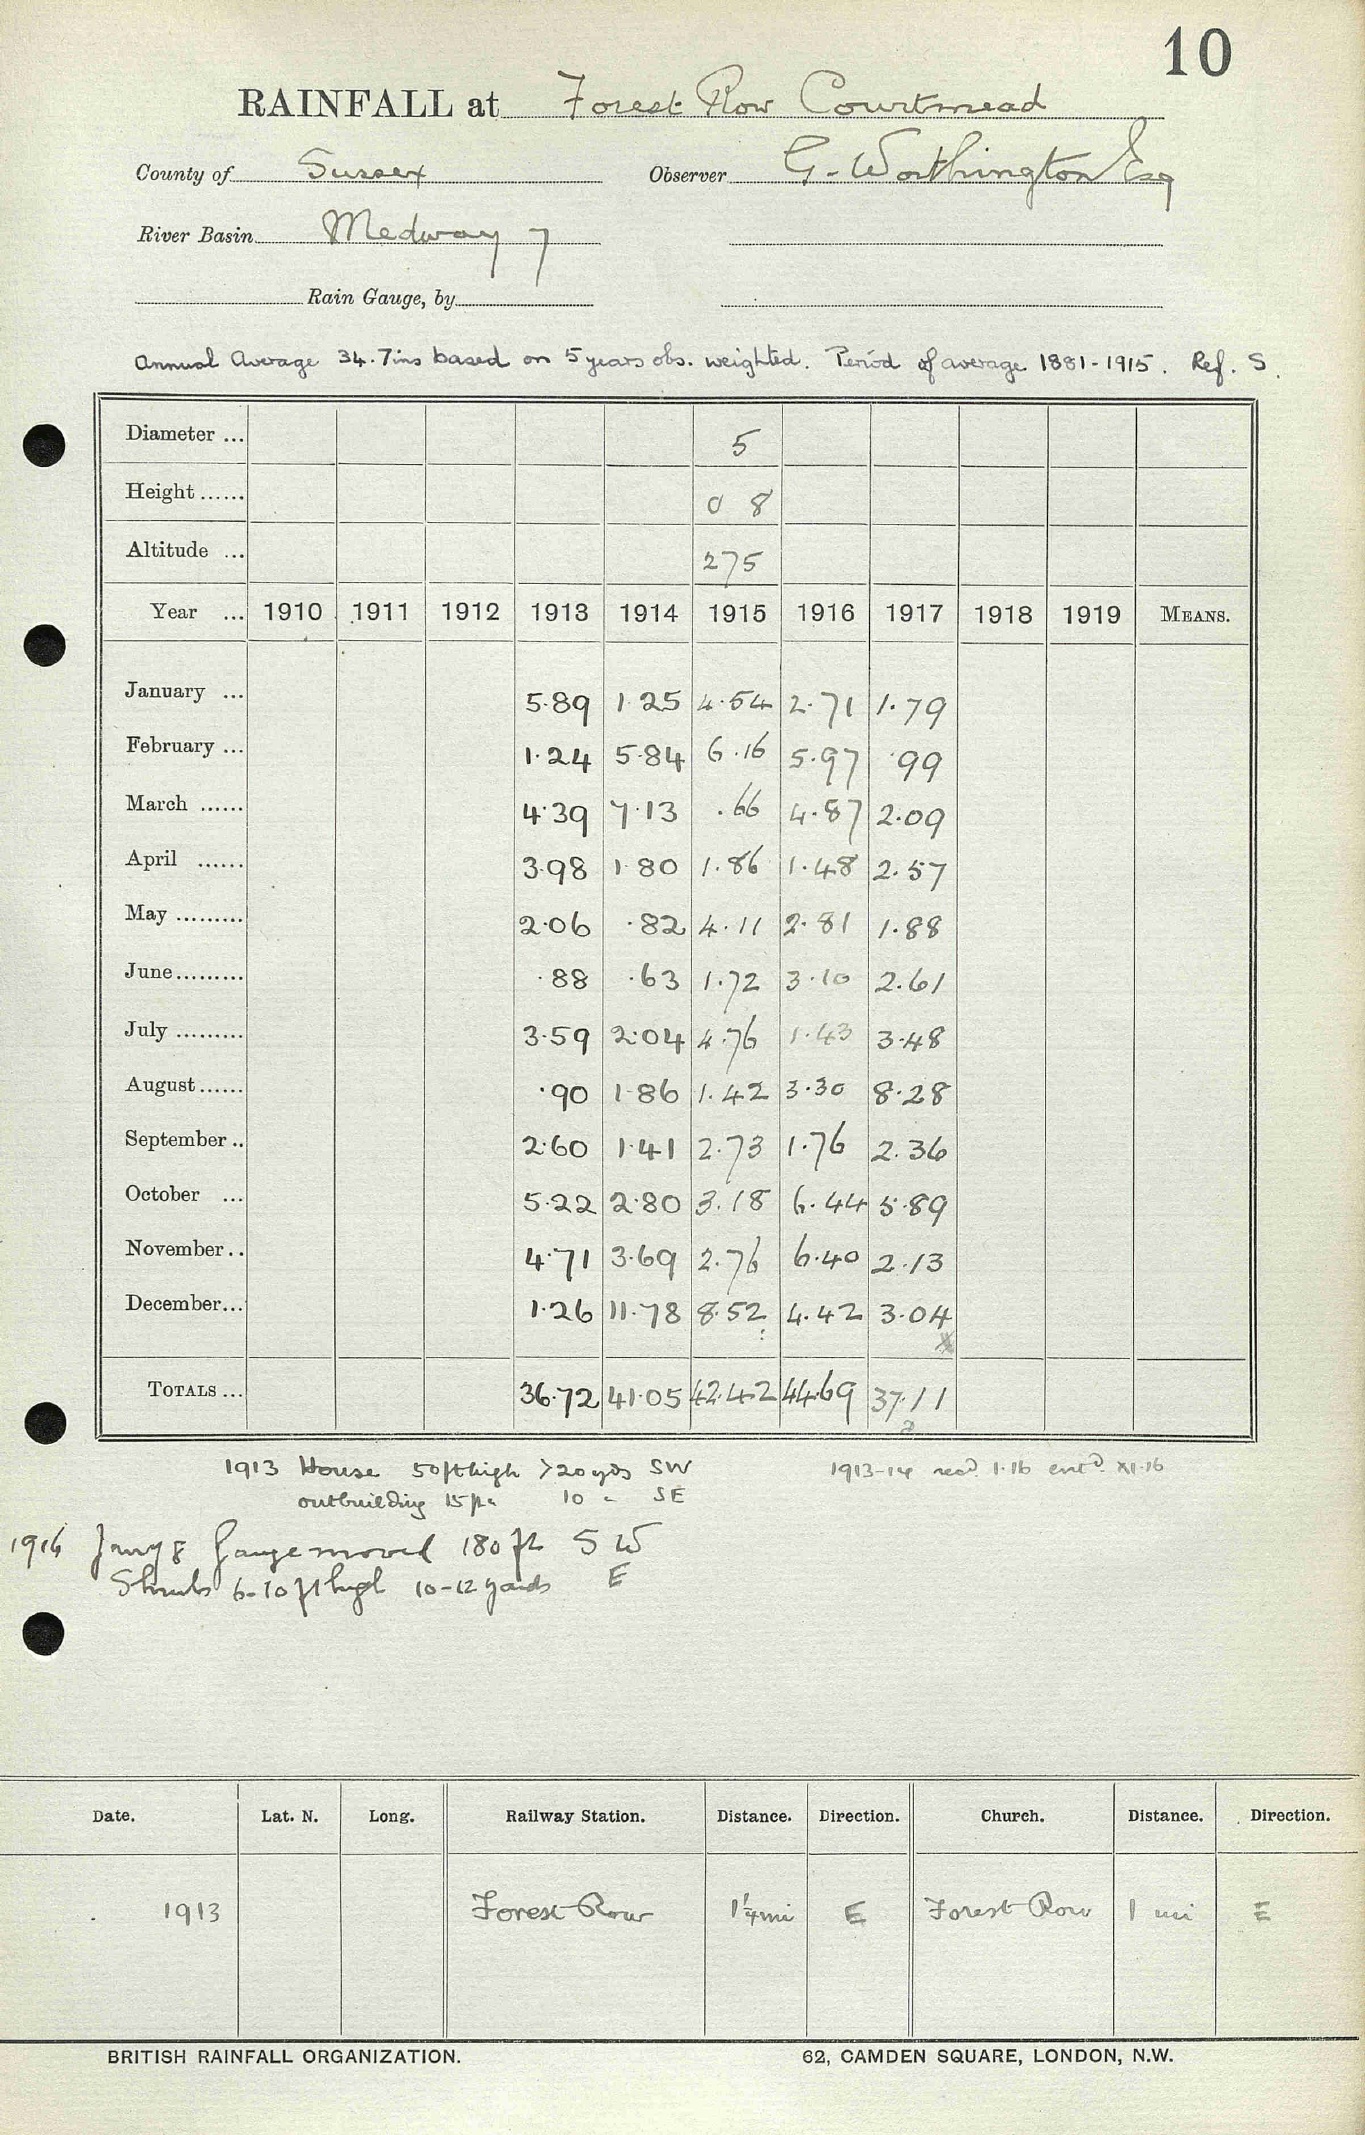 10
RAINFALL at Forest Row Courtmead
County of Sussex Observer G. Worthington Esq
River Basin Medway 7
Rain Gauge, by
Annual Average 34.7ins based on 5 years obs. weighted. Period of average 1881-1915. Ref. S.
Diameter ... 5
Height ...... 0 8
Altitude ... 275
Year ... 1910 1911 1912 1913 1914 1915 1916 1917 1918 1919 MEANS.
January ... 5.89 1.25 4.54 2.71 1.79
February ... 1.24 5.84 6.16 5.97 .99
March ...... 4.39 7.13 .66 4.87 2.09
April ...... 3.98 1.80 1.86 1.48 2.57
May ......... 2.06 .82 4.11 2.81 1.88
June ......... .88 .63 1.72 3.10 2.61
July ......... 3.59 2.04 4.76 1.43 3.48
August ...... .90 1.86 1.42 3.30 8.28
September .. 2.60 1.41 2.73 1.76 2.36
October ... 5.22 2.80 3.18 6.44 5.89
November .. 4.71 3.69 2.76 6.40 2.13
December ... 1.26 11.78 8.52 4.42 3.04
TOTALS ... 36.72 41.05 42.42 44.69 37.11
1913 House 50ft high >20yds SW 1913-14 recd. 1.16 entd. 1.16
outbuilding 15ft " 10 " SE
1916 Jany 8 Gauge moved 180 ft SW
Shrubs 6-10 ft high 10-12 yards E
Date. Lat. N. Long. Railway Station. Distance. Direction. Church. Distance. Direction.
1913 Forest Row 1¼mi E Forest Row 1 mi E
BRITISH RAINFALL ORGANIZATION. 62, CAMDEN SQUARE, LONDON, N.W.